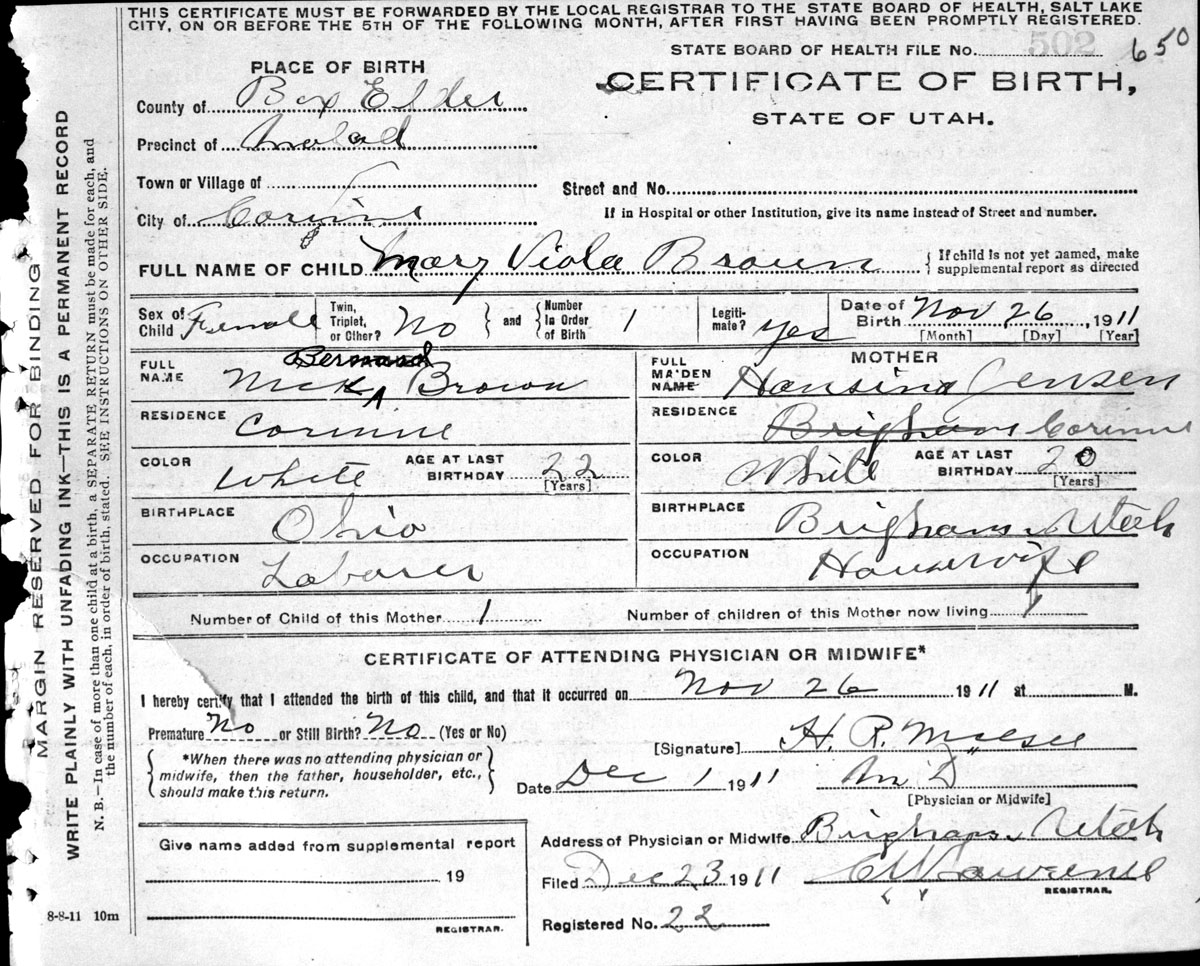 THIS CERTIFICATE MUST BE FORWARDED BY THE LOCAL REGISTRAR TO THE STATE BOARD OF HEALTH, SALT LAKE
CITY, ON OR BEFORE THE 5TH OF THE FOLLOWING MONTH, AFTER FIRST HAVING BEEN PROMPTLY REGISTERED.
STATE BOARD OF HEALTH FILE No. 502 650
PLACE OF BIRTH
CERTIFICATE OF BIRTH,
STATE OF UTAH.
County of Box Elder
Precinct of Malad
Town or Village of
Street and No.
City of Corinne
If in Hospital or other Institution, give its name instead of Street and number.
FULL NAME OF CHILD Mary Viola Brown { If child is not yet named, make supplemental report as directed
Sex of Child Female Twin, Triplet, or Other? No } and { Number in Order of Birth 1 Legiti-mate? yes Date of Birth Nov 26, 1911
[Month] [Day] [Year]
MOTHER
Bernard
FULL NAME Nick ^ Brown FULL MAIDEN NAME Hansina Jensen
RESIDENCE Corinne RESIDENCE Brigham Corinne
COLOR White AGE AT LAST BIRTHDAY 22 [Years] COLOR White AGE AT LAST BIRTHDAY 20 [Years]
BIRTHPLACE Ohio BIRTHPLACE Brigham Utah
OCCUPATION Laborer OCCUPATION Housewife
Number of Child of this Mother 1 Number of children of this Mother now living 1
CERTIFICATE OF ATTENDING PHYSICIAN OR MIDWIFE*
I hereby certify that I attended the birth of this child, and that it occurred on Nov 26 1911 at M.
Premature No or Still Birth? No (Yes or No)
[Signature] H. R.
*When there was no attending physician or
midwife, then the father, householder, etc.,
should make this return.
Date Dec 1 1911 M D
[Physician or Midwife]
Address of Physician or Midwife Brigham Utah
Give name added from supplemental report
19
REGISTRAR.
Filed Dec 23 1911 Lawrence
REGISTRAR.
Registered No. 22
8-8-11 10m
MARGIN RESERVED FOR BINDING
WRITE PLAINLY WITH UNFADING INK—THIS IS A PERMANENT RECORD
N. B.—In case of more than one child at a birth, a SEPARATE RETURN must be made for each, and
the number of each, in order of birth, stated. SEE INSTRUCTIONS ON OTHER SIDE.